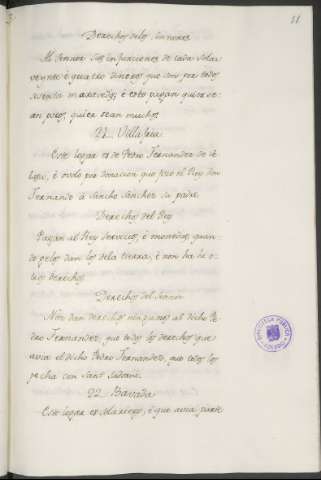 51
Derechos de los Sennores
Al Sennor sus infurciones de cada solar
veynte è quatro dineros que son por todos
sesenta maravedis, è esto pagan quier se-
an pocos, quier sean muchos.
21. Villafria
Este logar es de Pedro Fernandez de Ve-
lasco, è ovolo por donacion que fiso el Rey don
Fernando à Sancho Sanchez su padre.
Derechos del Rey
Pagan al Rey servicios, è monedas, quan-
do gelos dan los de la tierra, è non ha hi o-
tros derechos.
Derechos del Sennor
Non dan derechos ningunos al dicho Pe-
dro Fernandez, que todos los derechos que
avia el dicho Pedro Fernandez, que todos los
pecha con Sant
22. Barada
Este logar es solariego, è que avia parte
BIBLIOTECA PUBLICA
TOLEDO